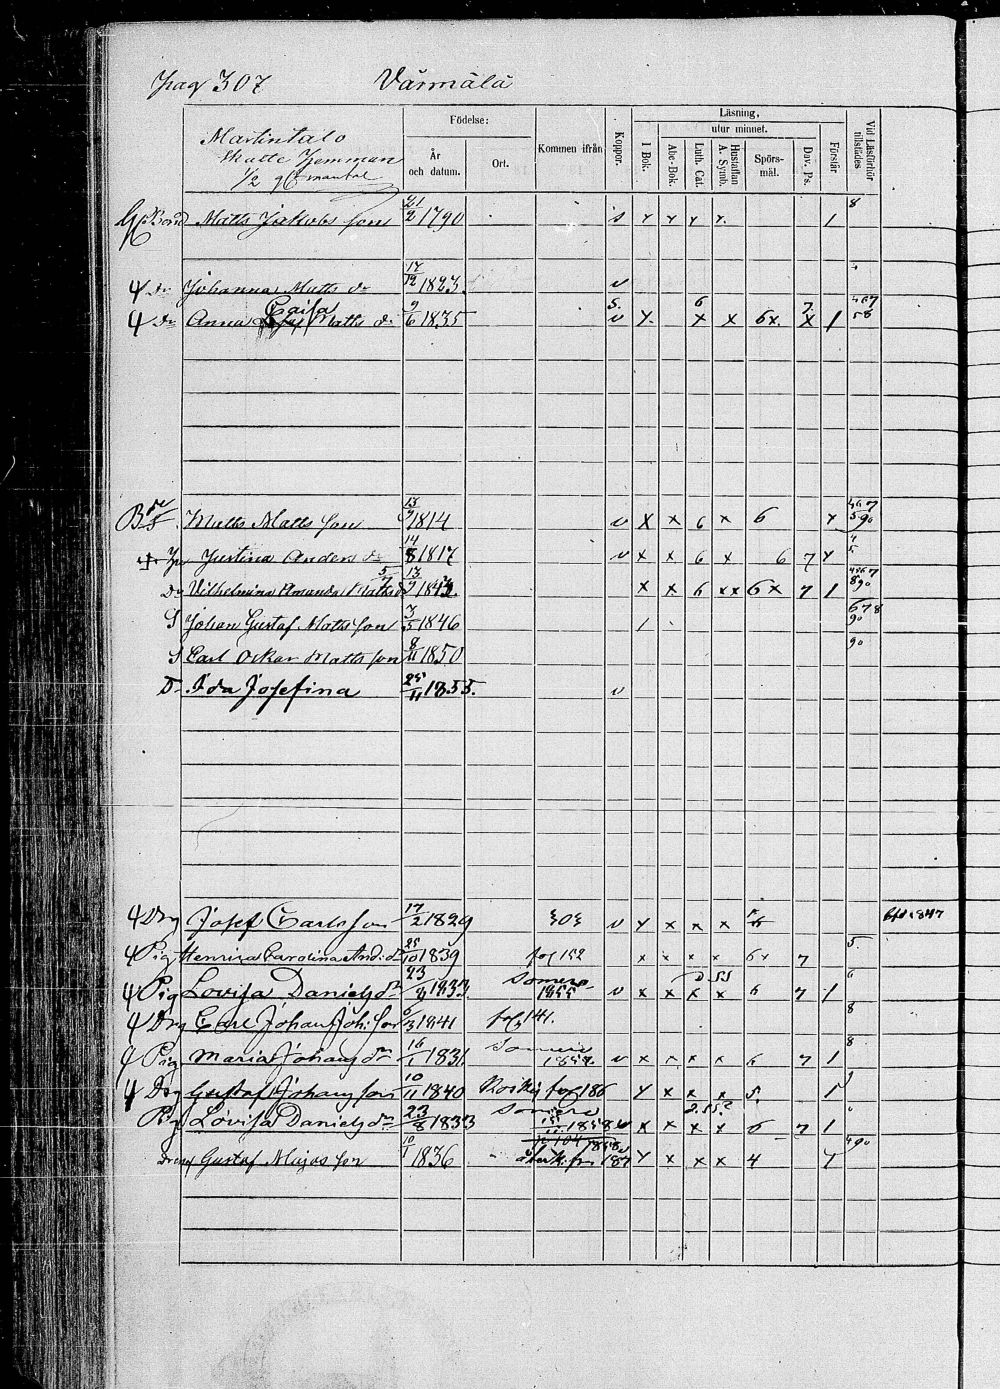 pag 307 Värmälä
Martintalo
Skatte Hemman
1/2 mantal
Födelse:
År och datum.
Ort.
Kommen ifrån
Koppor.
Läsning,
utur minnet.
I Bok.
Abc-Bok.
Luth. Cat.
Hustaflan A. Symb.
Spörs-mål.
Dav. Ps.
Förstår
Vid Läsförhör tillstädes
Matts Jakobs son 21/2 1790 s 1 8
Dr Johanna Matts dr 17/12 1823. v
Dr Anna Caisa Matts dr 9/6 1835 v x 6 x x 6x. 7 x 1 58
Matts Matts son 13/9 1814 v x x 6 x 6 x 90
Justina Anders dr 14/8 1817 v x x 6 x 6 7 x 5
Dr Vilhelmina Amanda Matts d 13/9 x x 6 xx 6x 7 1 890
S Johan Gustaf Matts son 3/5 1846 1 678 90
S Carl Oskar Matts son 1850 90
Dr Ida Josefina 25/11 1855. v
Drg Josef Carls son 17/2 1829 303 v x x x x 1847
Pig Henrica Carolina And: dr 25/10 1839 pag 152 x x x x 6x 7 5.
Pig Lovisa Daniels dr 23 1833 Somero 1855 v x x x x 6 7 1 6
Drg Carl Johan Joh: son 1841 pag 141. 8
Pig Maria Johans dr 16/1 1831 Somero v x x x 6 7 1 8
Drg Gustaf Johans son 10/11 1840 Koski pag 186 x x x x 5. 1
Pig Lovisa Daniels dr 23/8 1833 Somero x x x x 6 7 1
Dreng Gustaf Majas son 10/1 1836 x x x x 4 490